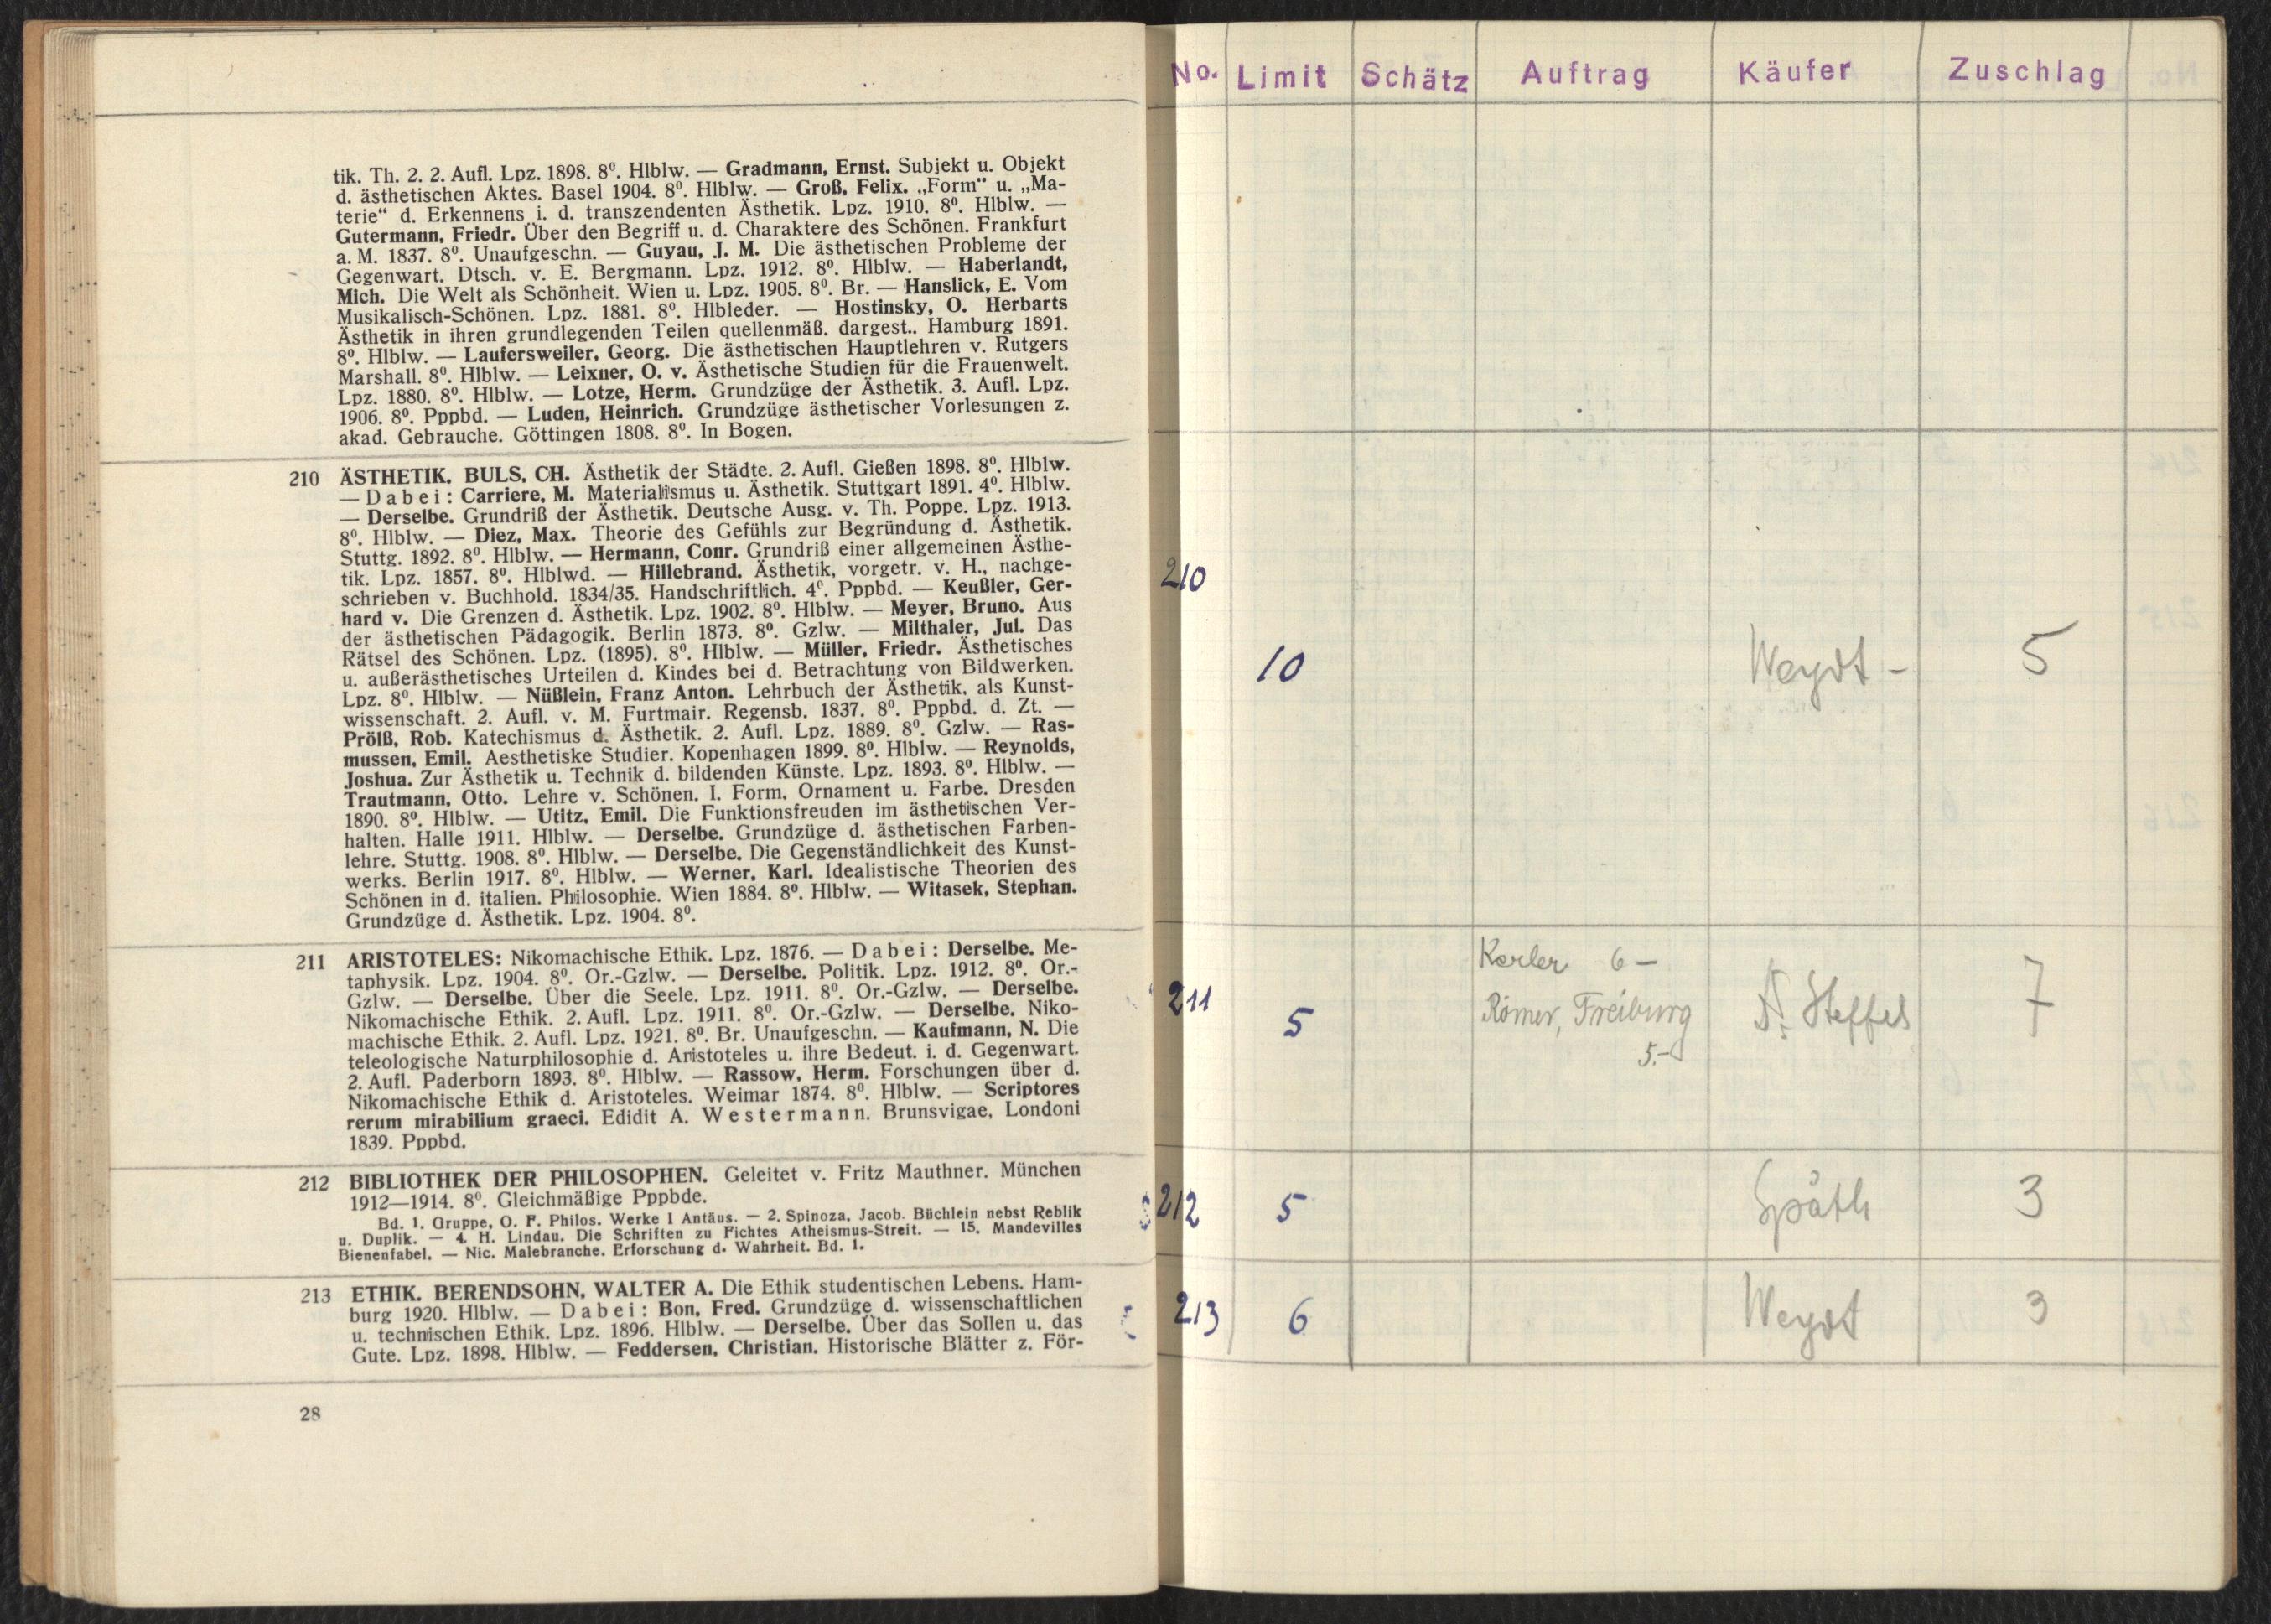 tik. Th. 2. 2. Aufl. Lpz. 1898. 8⁰. Hlblw. — Gradmann, Ernst. Subjekt u. Objekt
d. ästhetischen Aktes. Basel 1904. 8⁰. Hlblw. — Groß, Felix. „Form“ u. „Ma-
terie“ d. Erkennens i. d. transzendenten Ästhetik. Lpz. 1910. 8⁰. Hlblw. —
Gutermann, Friedr. Über den Begriff u. d. Charaktere des Schönen. Frankfurt
a. M. 1837. 8⁰. Unaufgeschn. — Guyau, J. M. Die ästhetischen Probleme der
Gegenwart. Dtsch. v. E. Bergmann. Lpz. 1912. 8⁰. Hlblw. — Haberlandt,
Mich. Die Welt als Schönheit. Wien u. Lpz. 1905. 8⁰. Br. — Hanslick, E. Vom
Musikalisch-Schönen. Lpz. 1881. 8⁰. Hlbleder. — Hostinsky, O. Herbarts
Ästhetik in ihren grundlegenden Teilen quellenmäß. dargest.. Hamburg 1891.
8⁰. Hlblw. — Laufersweiler, Georg. Die ästhetischen Hauptlehren v. Rutgers
Marshall. 8⁰. Hlblw. — Leixner, O. v. Ästhetische Studien für die Frauenwelt.
Lpz. 1880. 8⁰. Hlblw. — Lotze, Herm. Grundzüge der Ästhetik. 3. Aufl. Lpz.
1906. 8⁰. Pppbd. — Luden, Heinrich. Grundzüge ästhetischer Vorlesungen z.
akad. Gebrauche. Göttingen 1808. 8⁰. In Bogen.
210 ÄSTHETIK. BULS, CH. Ästhetik der Städte. 2. Aufl. Gießen 1898. 8⁰. Hlblw.
— Dabei: Carriere, M. Materialismus u. Ästhetik. Stuttgart 1891. 4⁰. Hlblw.
— Derselbe. Grundriß der Ästhetik. Deutsche Ausg. v. Th. Poppe. Lpz. 1913.
8⁰. Hlblw. — Diez, Max. Theorie des Gefühls zur Begründung d. Ästhetik.
Stuttg. 1892. 8⁰. Hlblw. — Hermann, Conr. Grundriß einer allgemeinen Ästhe-
tik. Lpz. 1857. 8⁰. Hlblwd. — Hillebrand. Ästhetik, vorgetr. v. H., nachge-
schrieben v. Buchhold. 1834/35. Handschriftlich. 4⁰. Pppbd. — Keußler, Ger-
hard v. Die Grenzen d. Ästhetik. Lpz. 1902. 8⁰. Hlblw. — Meyer, Bruno. Aus
der ästhetischen Pädagogik. Berlin 1873. 8⁰. Gzlw. — Milthaler, Jul. Das
Rätsel des Schönen. Lpz. (1895). 8⁰. Hlblw. — Müller, Friedr. Ästhetisches
u. außerästhetisches Urteilen d. Kindes bei d. Betrachtung von Bildwerken.
Lpz. 8⁰. Hlblw. — Nüßlein, Franz Anton. Lehrbuch der Ästhetik, als Kunst-
wissenschaft. 2. Aufl. v. M. Furtmair. Regensb. 1837. 8⁰. Pppbd. d. Zt. —
Prölß, Rob. Katechismus d. Ästhetik. 2. Aufl. Lpz. 1889. 8⁰. Gzlw. — Ras-
mussen, Emil. Aesthetiske Studier. Kopenhagen 1899. 8⁰. Hlblw. — Reynolds,
Joshua. Zur Ästhetik u. Technik d. bildenden Künste. Lpz. 1893. 8⁰. Hlblw. —
Trautmann, Otto. Lehre v. Schönen. I. Form, Ornament u. Farbe. Dresden
1890. 8⁰. Hlblw. — Utitz, Emil. Die Funktionsfreuden im ästhetischen Ver-
halten. Halle 1911. Hlblw. — Derselbe. Grundzüge d. ästhetischen Farben-
lehre. Stuttg. 1908. 8⁰. Hlblw. — Derselbe. Die Gegenständlichkeit des Kunst-
werks. Berlin 1917. 8⁰. Hlblw. — Werner, Karl. Idealistische Theorien des
Schönen in d. italien. Philosophie. Wien 1884. 8⁰. Hlblw. — Witasek, Stephan.
Grundzüge d. Ästhetik. Lpz. 1904. 8⁰.
211 ARISTOTELES: Nikomachische Ethik. Lpz. 1876. — Dabei: Derselbe. Me-
taphysik. Lpz. 1904. 8⁰. Or.-Gzlw. — Derselbe. Politik. Lpz. 1912. 8⁰. Or.-
Gzlw. — Derselbe. Über die Seele. Lpz. 1911. 8⁰. Or.-Gzlw. — Derselbe.
Nikomachische Ethik. 2. Aufl. Lpz. 1911. 8⁰. Or.-Gzlw. — Derselbe. Niko-
machische Ethik. 2. Aufl. Lpz. 1921. 8⁰. Br. Unaufgeschn. — Kaufmann, N. Die
teleologische Naturphilosophie d. Aristoteles u. ihre Bedeut. i. d. Gegenwart.
2. Aufl. Paderborn 1893. 8⁰. Hlblw. — Rassow, Herm. Forschungen über d.
Nikomachische Ethik d. Aristoteles. Weimar 1874. 8⁰. Hlblw. — Scriptores
rerum mirabilium graeci. Edidit A. Westermann. Brunsvigae, Londoni
1839. Pppbd.
212 BIBLIOTHEK DER PHILOSOPHEN. Geleitet v. Fritz Mauthner. München
1912—1914. 8⁰. Gleichmäßige Pppbde.
Bd. 1. Gruppe, O. F. Philos. Werke I Antäus. — 2. Spinoza, Jacob. Büchlein nebst Reblik
u. Duplik. — 4. H. Lindau. Die Schriften zu Fichtes Atheismus-Streit. — 15. Mandevilles
Bienenfabel. — Nic. Malebranche. Erforschung d. Wahrheit. Bd. 1.
213 ETHIK. BERENDSOHN, WALTER A. Die Ethik studentischen Lebens. Ham-
burg 1920. Hlblw. — Dabei: Bon, Fred. Grundzüge d. wissenschaftlichen
u. technischen Ethik. Lpz. 1896. Hlblw. — Derselbe. Über das Sollen u. das
Gute. Lpz. 1898. Hlblw. — Feddersen, Christian. Historische Blätter z. För-
28
No. Limit Schätz Auftrag Käufer Zuschlag
210
10 Weydt - 5
Kerler 6 —
211 5 Römer, Freiburg Steffes 7
5.-
212 5 Späth 3
213 6 Weydt 3